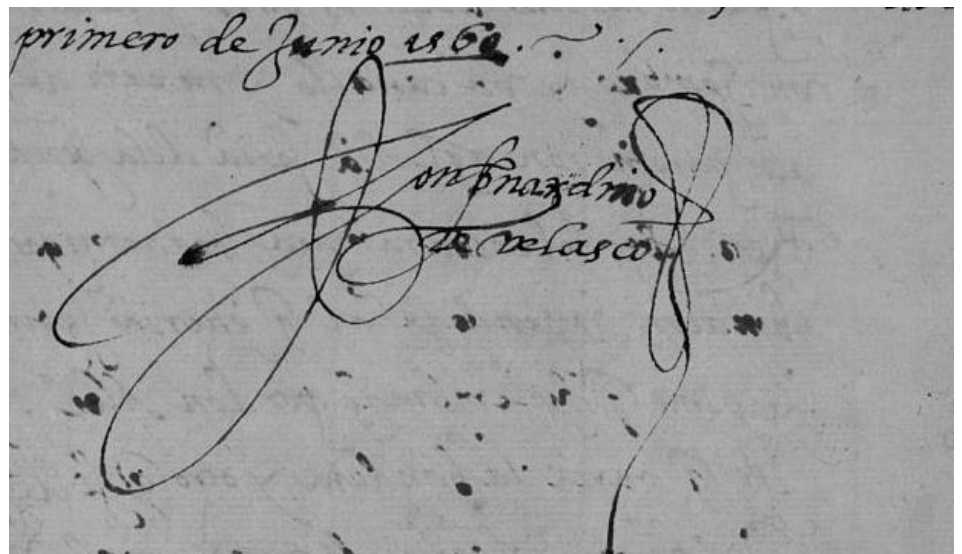 primero de Junio 1560.
Don bernardino
de velasco